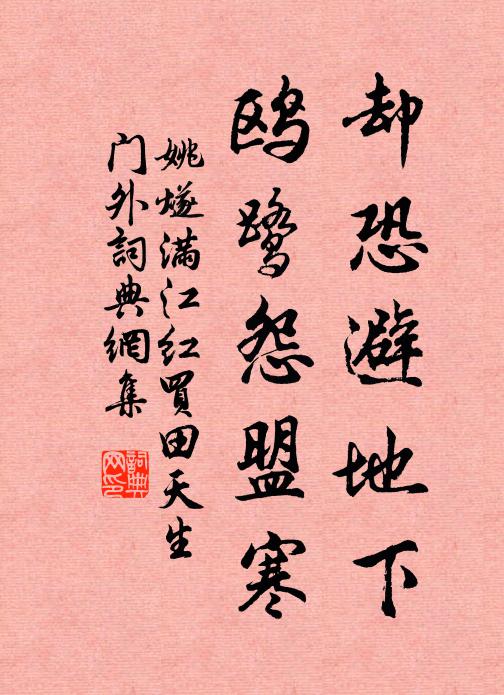 却恐避地下
鸥鹭怨盟寒
姚燧满江红買田天生
门外詞典網集
詞典网印